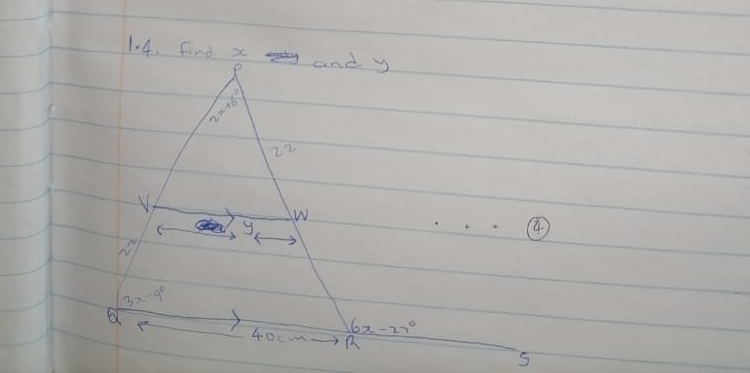 1.4. find x and y
P
2x+8°
22
V
W
y
④
22
3x-9°
Q
40cm
R
6x-27°
S